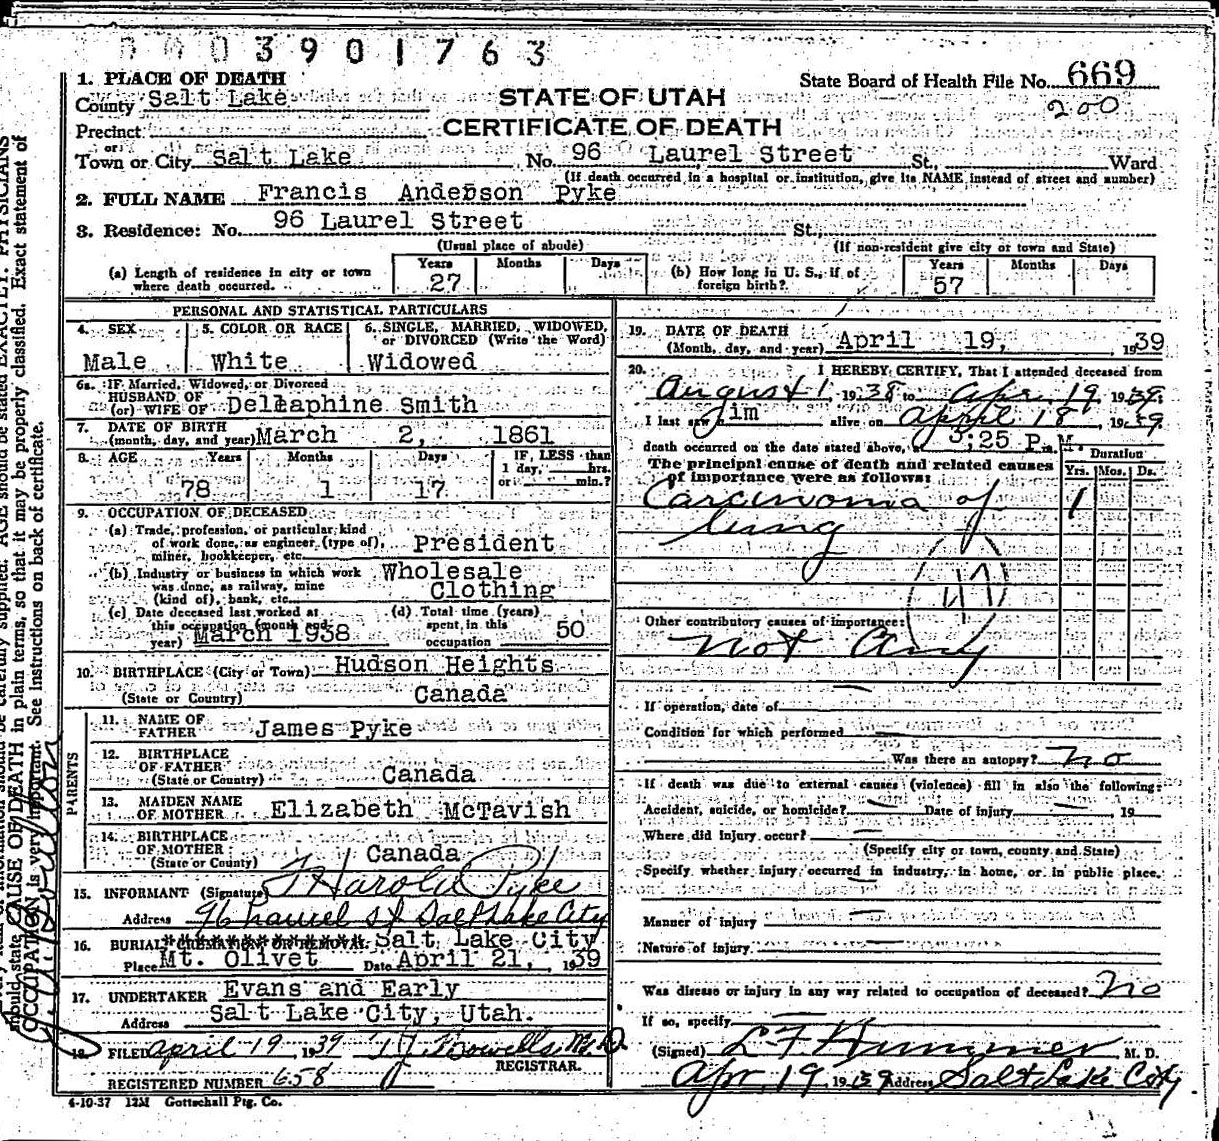 0003901763
State Board of Health File No. 669
200
STATE OF UTAH
CERTIFICATE OF DEATH
1. PLACE OF DEATH
County Salt Lake
Precinct
or
Town or City Salt Lake No. 96 Laurel Street St., Ward
(If death occurred in a hospital or institution, give its NAME instead of street and number)
2. FULL NAME Francis Anderson Pyke
3. Residence: No. 96 Laurel Street St.,
(Usual place of abode) (If non-resident give city or town and State)
(a) Length of residence in city or town where death occurred. Years 27 Months Days
(b) How long in U. S., if of foreign birth? Years 57 Months Days
PERSONAL AND STATISTICAL PARTICULARS
4. SEX Male
5. COLOR OR RACE White
6. SINGLE, MARRIED, WIDOWED, or DIVORCED (Write the Word) Widowed
6a. IF Married, Widowed, or Divorced
HUSBAND OF
(or) WIFE OF Delaphine Smith
7. DATE OF BIRTH
(month, day, and year) March 2, 1861
8. AGE Years 78 Months 1 Days 17 IF, LESS than 1 day, hrs. or min.?
9. OCCUPATION OF DECEASED
(a) Trade, profession, or particular kind of work done, as engineer (type of), miner, bookkeeper, etc. President
(b) Industry or business in which work was done, as railway, mine (kind of), bank, etc. Wholesale Clothing
(c) Date deceased last worked at this occupation (month and year) March 1938
(d) Total time (years) spent in this occupation 50
10. BIRTHPLACE (City or Town) Hudson Heights
(State or Country) Canada
PARENTS
11. NAME OF FATHER James Pyke
12. BIRTHPLACE OF FATHER
(State or Country) Canada
13. MAIDEN NAME OF MOTHER Elizabeth McTavish
14. BIRTHPLACE OF MOTHER
(State or County) Canada
15. INFORMANT (Signature) F Harold Pyke
Address 96 Laurel St Salt Lake City
16. BURIAL, CREMATION OR REMOVAL Salt Lake City
Place Mt. Olivet Date April 21, 1939
17. UNDERTAKER Evans and Early
Address Salt Lake City, Utah.
18. FILED April 19 1939 M.D.
REGISTRAR.
REGISTERED NUMBER 658
4-10-37 12M Gottschall Ptg. Co.
19. DATE OF DEATH
(Month, day, and year) April 19, 1939
20. I HEREBY CERTIFY, That I attended deceased from
August 1, 1938 to Apr. 19 1939
I last saw him alive on April 18, 1939
death occurred on the date stated above, at 3:25 P. M.
The principal cause of death and related causes of importance were as follows:
Duration
Yrs. Mos. Ds.
Carcinoma of 1
lung
47
Other contributory causes of importance:
Not any
If operation, date of
Condition for which performed
Was there an autopsy? no
If death was due to external causes (violence) fill in also the following:
Accident, suicide, or homicide? Date of injury 19
Where did injury occur?
(Specify city or town, county and State)
Specify whether injury occurred in industry, in home, or in public place.
Manner of injury
Nature of injury
Was disease or injury in any way related to occupation of deceased? No
If so, specify
(Signed) L F Hummer M. D.
Apr. 19 1939 Address Salt Lake City
should state CAUSE OF DEATH in plain terms, so that it may be properly classified. Exact statement of
OCCUPATION is very important. See instructions on back of certificate.